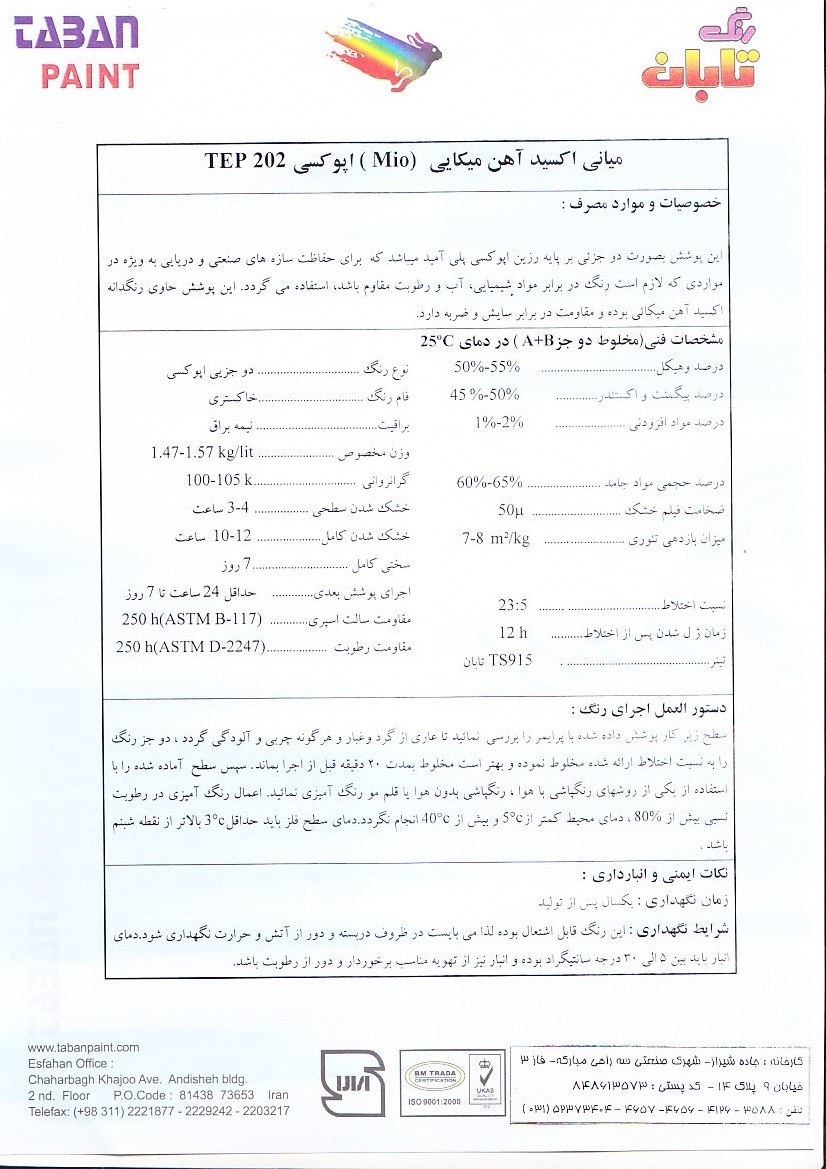 TABAN
PAINT
رنگ
تابان
میانی اکسید آهن میکایی (Mio) اپوکسی TEP 202
خصوصیات و موارد مصرف :
این پوشش بصورت دو جزئی بر پایه رزین اپوکسی پلی آمید میباشد که برای حفاظت سازه های صنعتی و دریایی به ویژه در
مواردی که لازم است رنگ در برابر مواد شیمیایی، آب و رطوبت مقاوم باشد، استفاده می گردد. این پوشش حاوی رنگدانه
اکسید آهن میکائی بوده و مقاومت در برابر سایش و ضربه دارد.
مشخصات فنی(مخلوط دو جزA+B ) در دمای 25°C
درصد وهیکل.............................. 50%-55%
درصد پیگمنت و اکستندر................ 45 %-50%
درصد مواد افزودنی .................... 1%-2%
درصد حجمی مواد جامد .................... 60%-65%
ضخامت فیلم خشک ...................... 50µ
میزان بازدهی تئوری .................... 7-8 m²/kg
نسبت اختلاط.............................. 23:5
زمان ژل شدن پس از اختلاط.......... 12 h
تینر........................................ TS915 تابان
نوع رنگ .............................. دو جزیی اپوکسی
فام رنگ ..............................خاکستری
براقیت..................................نیمه براق
وزن مخصوص .................... 1.47-1.57 kg/lit
گرانروانی ..............................100-105 k
خشک شدن سطحی ................ 3-4 ساعت
خشک شدن کامل.................. 10-12 ساعت
سختی کامل ............................7 روز
اجرای پوشش بعدی............ حداقل 24 ساعت تا 7 روز
مقاومت سالت اسپری........... 250 h(ASTM B-117)
مقاومت رطوبت ..................250 h(ASTM D-2247)
دستور العمل اجرای رنگ :
سطح زیر کار پوشش داده شده با پرایمر را بررسی نمائید تا عاری از گرد وغبار و هرگونه چربی و آلودگی گردد ، دو جز رنگ
را به نسبت اختلاط ارائه شده مخلوط نموده و بهتر است مخلوط بمدت ۲۰ دقیقه قبل از اجرا بماند. سپس سطح آماده شده را با
استفاده از یکی از روشهای رنگپاشی با هوا ، رنگپاشی بدون هوا یا قلم مو رنگ آمیزی نمائید. اعمال رنگ آمیزی در رطوبت
نسبی بیش از 80% ، دمای محیط کمتر از 5°c و بیش از 40°c انجام نگردد.دمای سطح فلز باید حداقل3°c بالاتر از نقطه شبنم
باشد .
نکات ایمنی و انبارداری :
زمان نگهداری : یکسال پس از تولید
شرایط نگهداری : این رنگ قابل اشتعال بوده لذا می بایست در ظروف دربسته و دور از آتش و حرارت نگهداری شود.دمای
انبار باید بین ۵ الی ۳۰ درجه سانتیگراد بوده و انبار نیز از تهویه مناسب برخوردار و دور از رطوبت باشد.
www.tabanpaint.com
Esfahan Office :
Chaharbagh Khajoo Ave. Andisheh bldg.
2 nd. Floor P.O.Code : 81438 73653 Iran
Telefax: (+98 311) 2221877 - 2229242 - 2203217
BM TRADA
CERTIFICATION
ISO 9001:2000
UKAS
کارخانه : جاده شیراز- شهرک صنعتی سه راهی مبارکه- فاز ۳
خیابان ۹ پلاک ۱۴ - کد پستی : ۸۴۸۶۱۳۵۷۳
تلفن : ۳۵۸۸ - ۴۱۲۶ - ۴۶۵۶ -۴۶۵۷ - ۵۲۳۷۳۴۰۴ (۰۳۱)